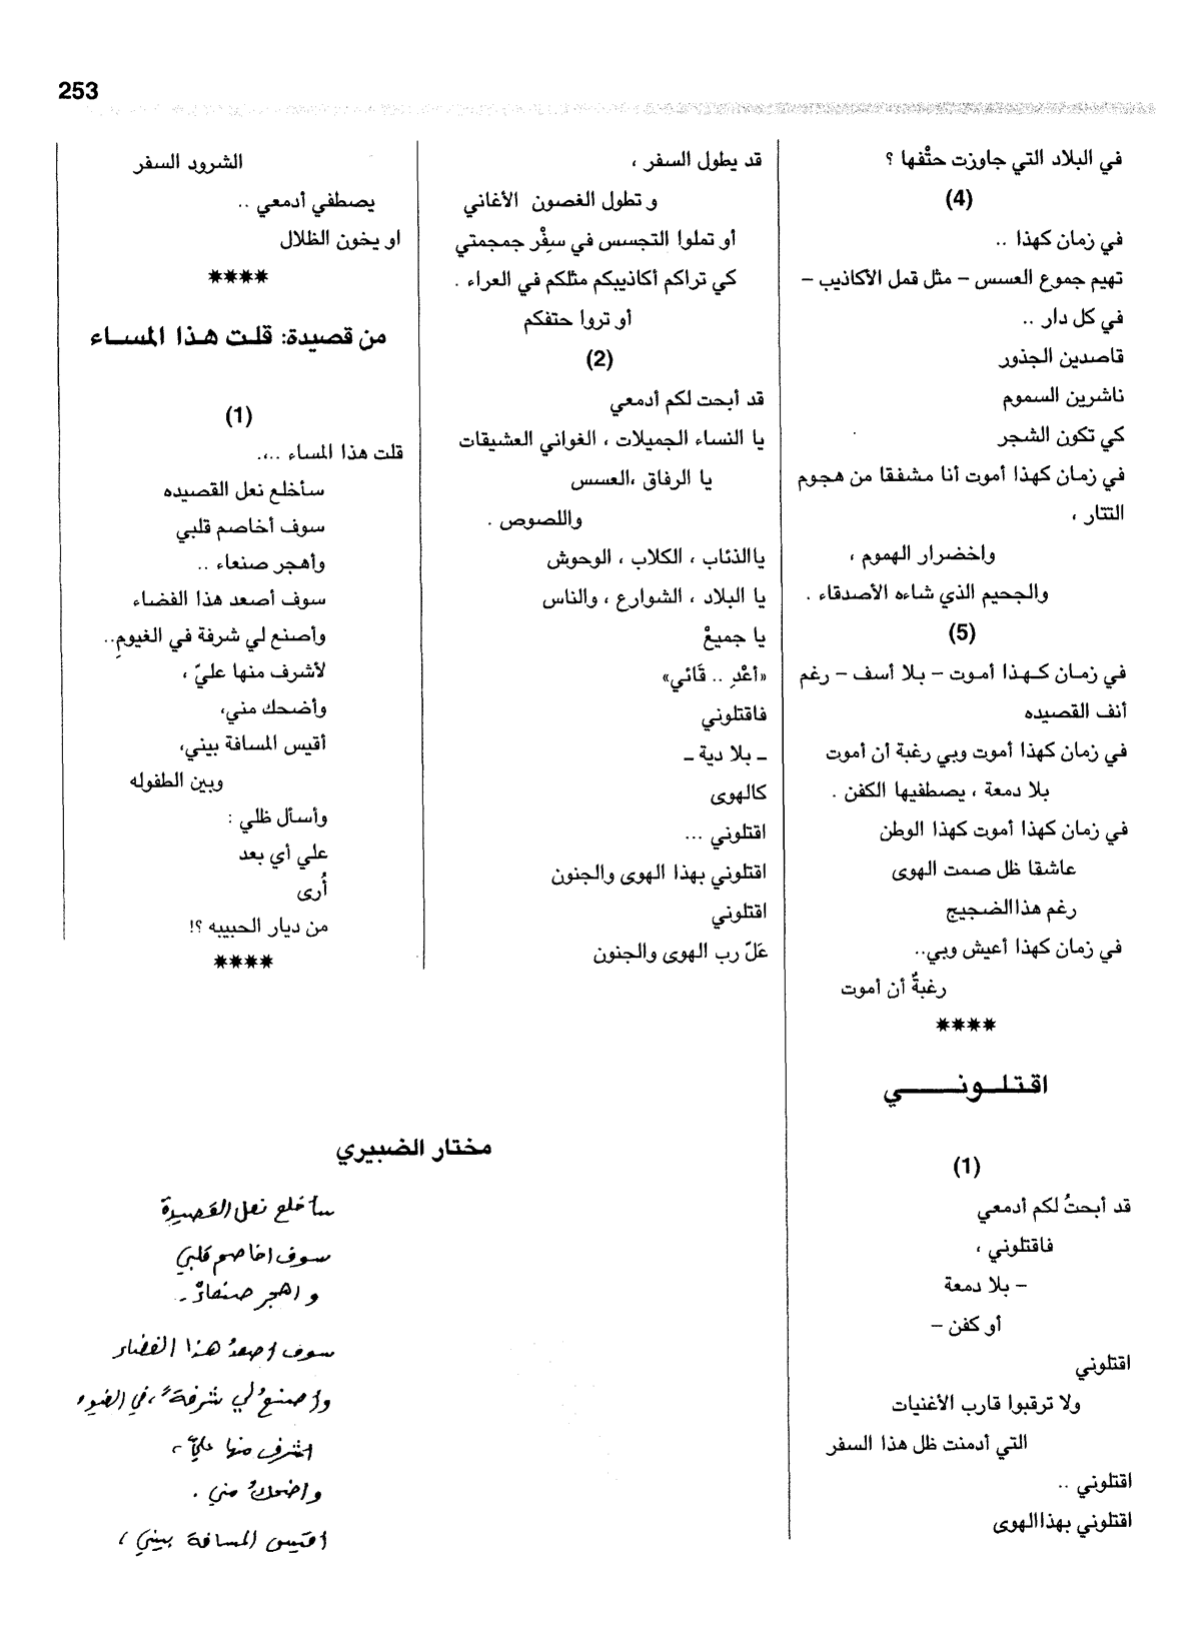 253
في البلاد التي جاوزت حتْفها ؟
(4)
في زمان كهذا ..
تهيم جموع العسس – مثل قمل الأكاذيب –
في كل دار ..
قاصدين الجذور
ناشرين السموم
كي تكون الشجر
في زمان كهذا أموت أنا مشفقا من هجوم
التتار ،
واخضرار الهموم ،
والجحيم الذي شاءه الأصدقاء .
(5)
في زمـان كـهـذا أمـوت – بـلا أسف – رغم
أنف القصيده
في زمان كهذا أموت وبي رغبة أن أموت
بلا دمعة ، يصطفيها الكفن .
في زمان كهذا أموت كهذا الوطن
عاشقا ظل صمت الهوى
رغم هذا الضجيج
في زمان كهذا أعيش وبي..
رغبةٌ أن أموت
****
اقـتـلـونـــــي
(1)
قد أبحتُ لكم أدمعي
فاقتلوني ،
– بلا دمعة
أو كفن –
اقتلوني
ولا ترقبوا قارب الأغنيات
التي أدمنت ظل هذا السفر
اقتلوني ..
اقتلوني بهذا الهوى
قد يطول السفر ،
و تطول الغصون الأغاني
أو تملوا التجسس في سِفْر جمجمتي
كي تراكم أكاذيبكم مثلكم في العراء .
أو تروا حتفكم
(2)
قد أبحت لكم أدمعي
يا النساء الجميلات ، الغواني العشيقات
يا الرفاق ،العسس
واللصوص .
يا الذئاب ، الكلاب ، الوحوش
يا البلاد ، الشوارع ، والناس
يا جميعْ
«أعْدِ .. قَائي»
فاقتلوني
ـ بلا دية ـ
كالهوى
اقتلوني ...
اقتلوني بهذا الهوى والجنون
اقتلوني
عَلّ رب الهوى والجنون
الشرود السفر
يصطفي أدمعي ..
او يخون الظلال
****
من قصيدة: قلـت هـذا المسـاء
(1)
قلت هذا المساء ..،.
سأخلع نعل القصيده
سوف أخاصم قلبي
وأهجر صنعاء ..
سوف أصعد هذا الفضاء
وأصنع لي شرفة في الغيومِ..
لأشرف منها عليّ ،
وأضحك مني،
أقيس المسافة بيني،
وبين الطفوله
وأسأل ظلي :
علي أي بعد
أُرى
من ديار الحبيبه ؟!
****
مختار الضبيري
سأخلع نعل القصيدة
سوف اخاصم قلبي
و اهجر صنعاءْ ..
سوف أصعدُ هذا الفضاء
وأصنعُ لي شرفةً ، في الغيوم
اشرف منها عليّ ،
و اضحكُ مني .
أقيس المسافة بيني ،